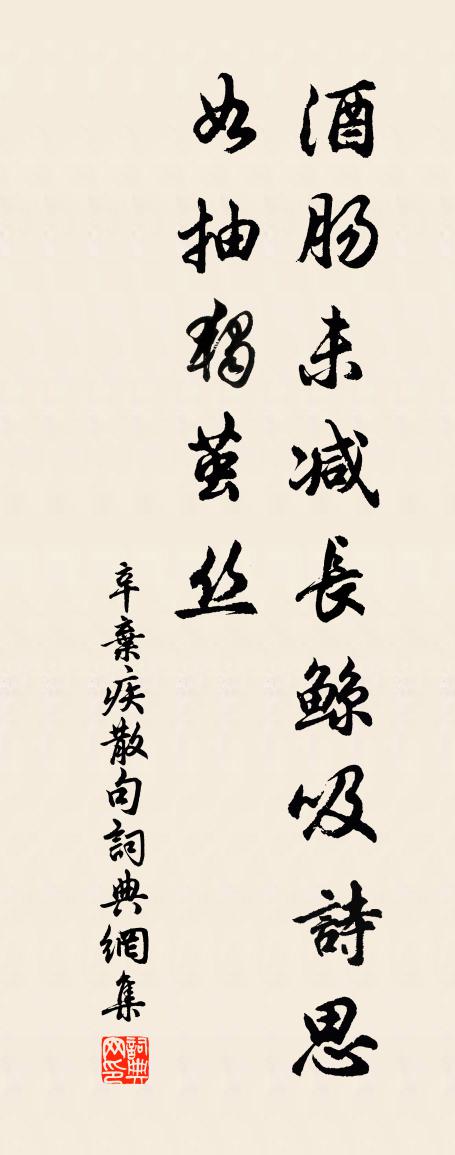 酒肠未减長鲸吸詩思
如抽独茧丝
辛棄疾散句詞典網集
詞典网印